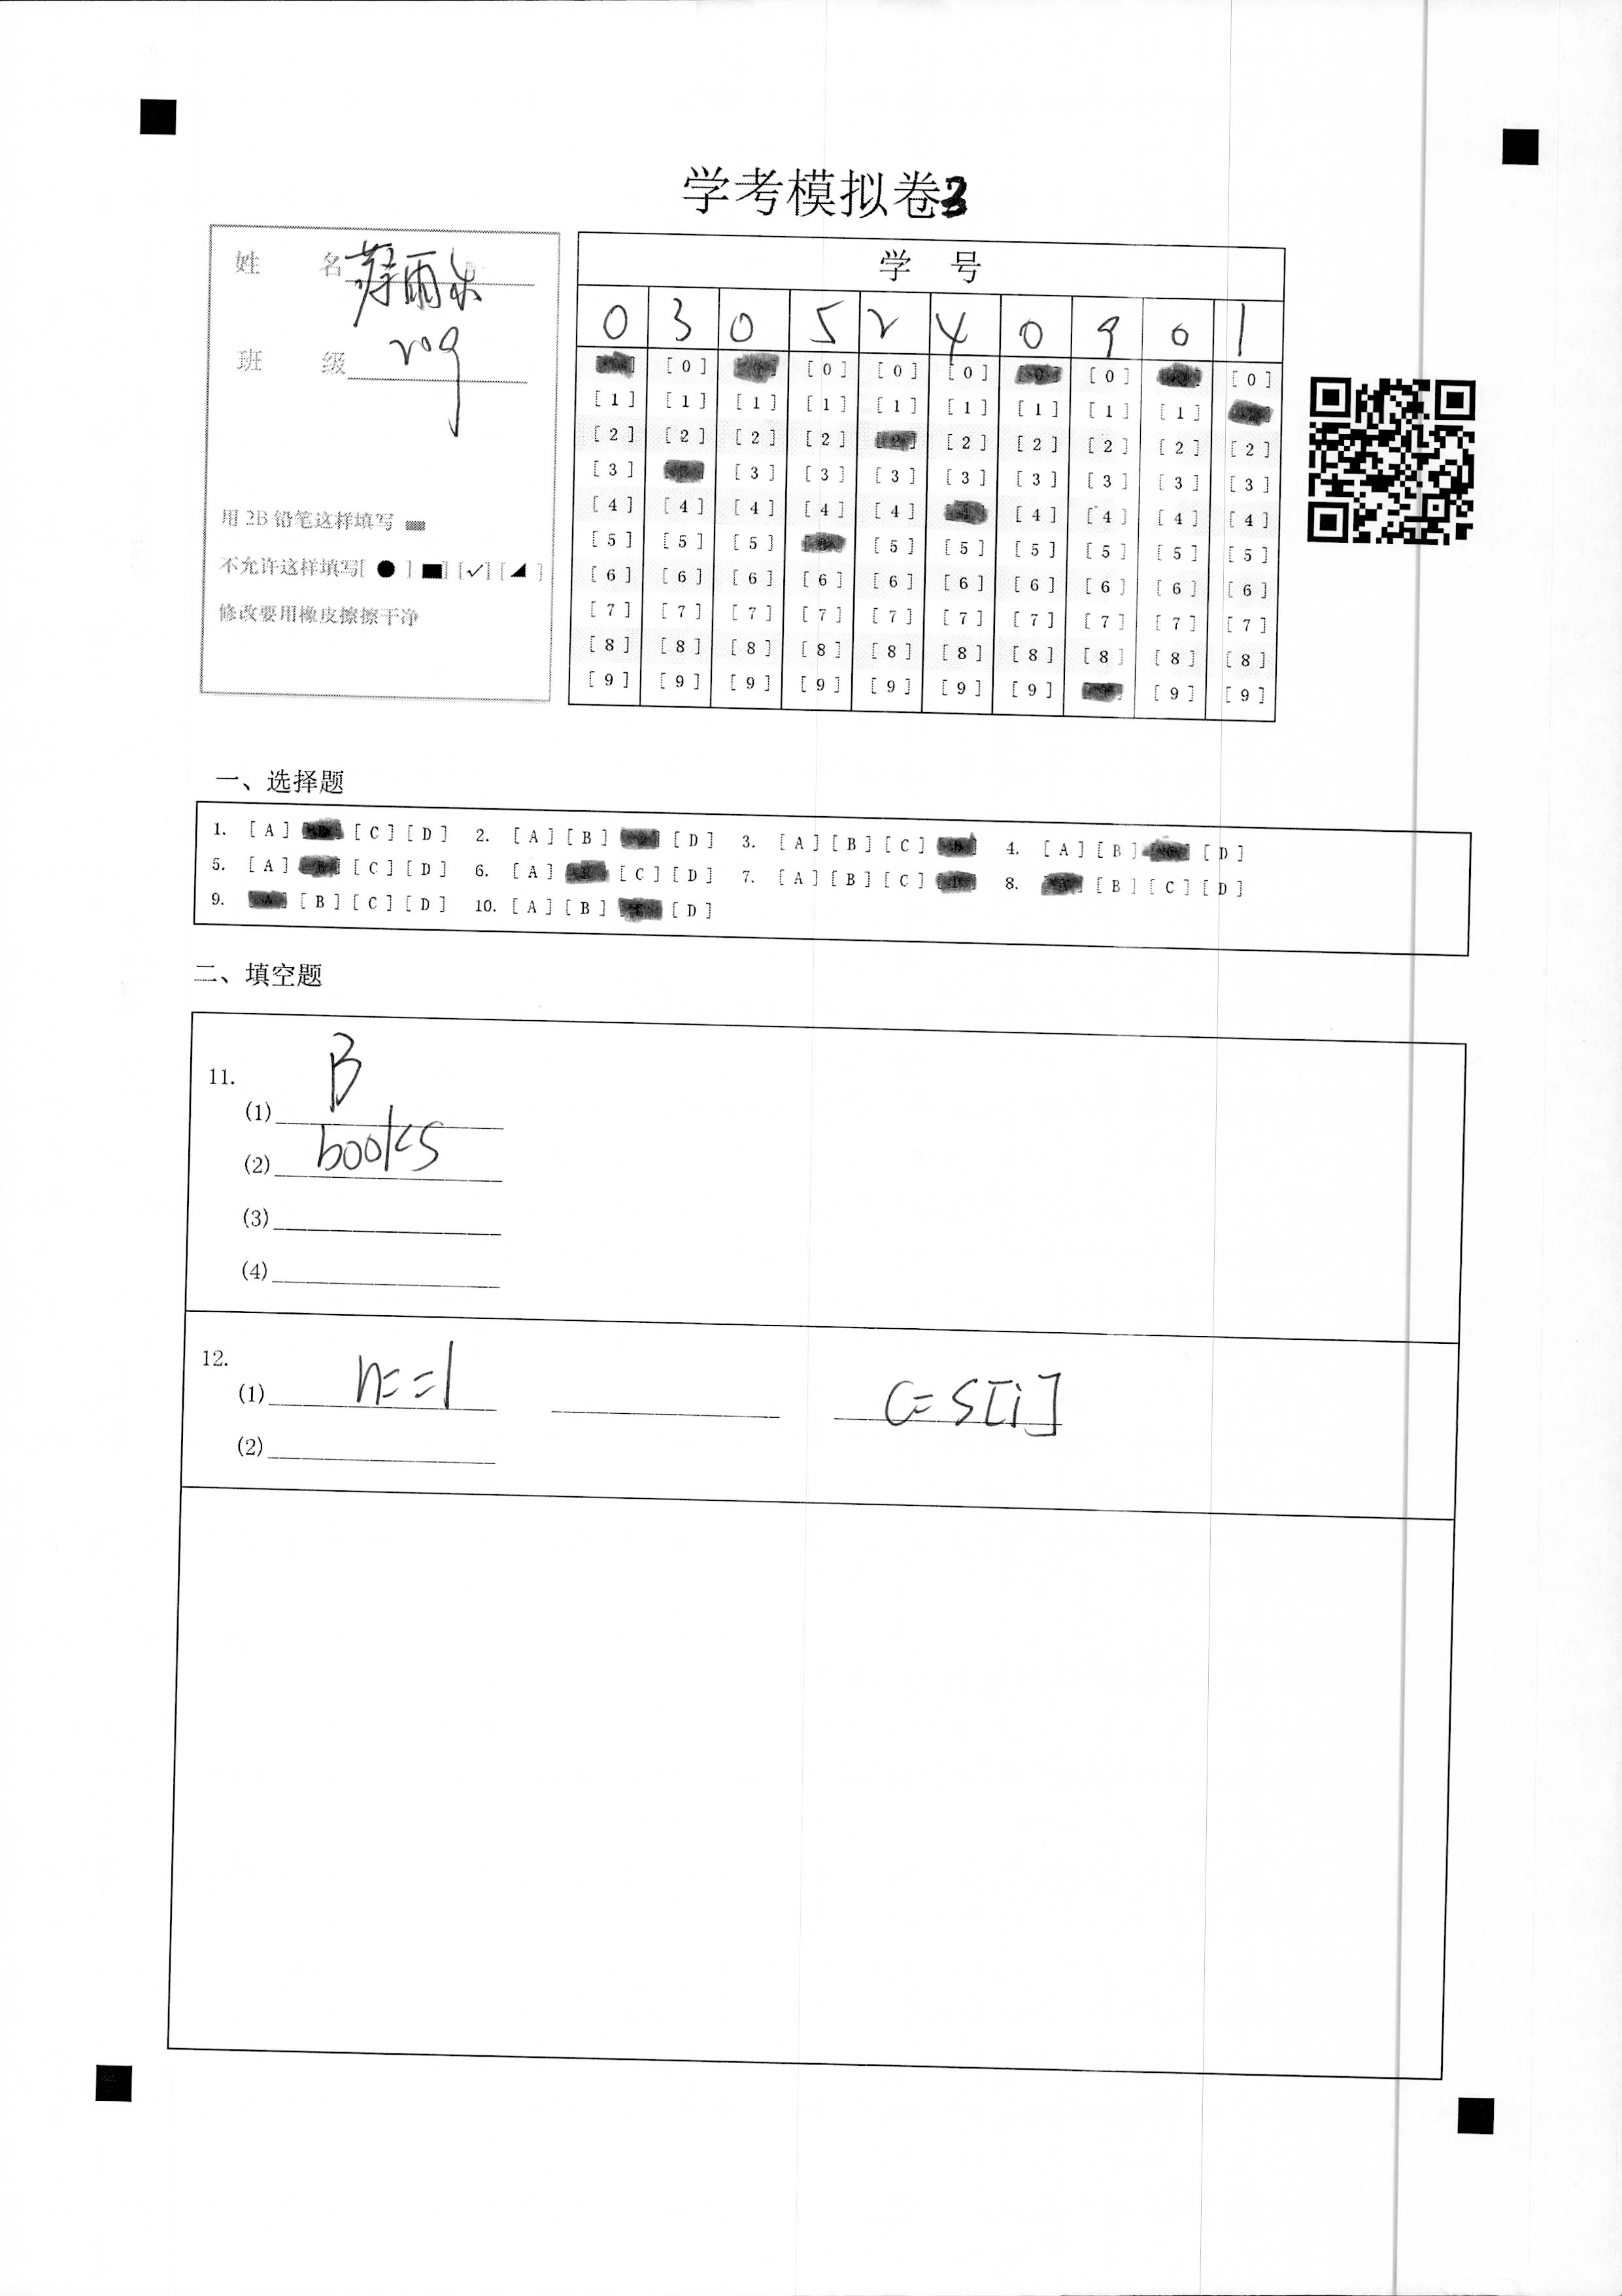 学考模拟卷3
姓 名 雨
班 级 209
用 2B 铅笔这样填写
不允许这样填写[ ● ] [■] [✓] [◢ ]
修改要用橡皮擦擦干净
学 号
0 3 0 5 2 4 0 9 0 1
[0] [0] [0] [0] [0] [0]
[1] [1] [1] [1] [1] [1] [1] [1] [1]
[2] [2] [2] [2] [2] [2] [2] [2] [2] [2]
[3] [3] [3] [3] [3] [3] [3] [3] [3]
[4] [4] [4] [4] [4] [4] [4] [4] [4] [4]
[5] [5] [5] [5] [5] [5] [5] [5] [5]
[6] [6] [6] [6] [6] [6] [6] [6] [6] [6]
[7] [7] [7] [7] [7] [7] [7] [7] [7] [7]
[8] [8] [8] [8] [8] [8] [8] [8] [8] [8]
[9] [9] [9] [9] [9] [9] [9] [9] [9] [9]
一、选择题
1. [A] [B] [C] [D] 2. [A] [B] [D] 3. [A] [B] [C] 4. [A] [B] [D]
5. [A] [B] [C] [D] 6. [A] [B] [C] [D] 7. [A] [B] [C] [D] 8. [A] [B] [C] [D]
9. [A] [B] [C] [D] 10. [A] [B] [D]
二、填空题
11.
(1) B
(2) books
(3)
(4)
12.
(1) n==1 c=s[i]
(2)